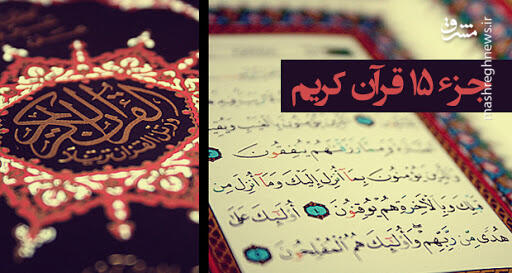 مشرق
mashreghnews.ir
جزء ۱۵ قرآن کریم
القرآن الكريم
ورتل القرآن ترتيلا
رَزَقْنَٰهُمْ يُنفِقُونَ
يُؤْمِنُونَ بِمَآ أُنزِلَ إِلَيْكَ وَمَآ أُنزِلَ مِن
قَبْلِكَ وَبِالْآخِرَةِ هُمْ يُوقِنُونَ ۴ أُولَٰٓئِكَ عَلَىٰ
هُدًى مِّن رَّبِّهِمْ وَأُولَٰٓئِكَ هُمُ الْمُفْلِحُونَ ۵